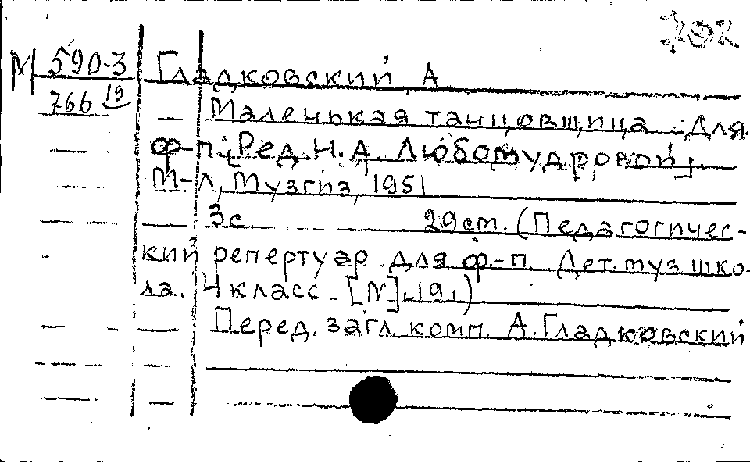 202
М 590-3 Гладковский А
766 19
Маленькая танцовщица. Для
ф-п. [Ред. Н. А. Любомудровой].
М-Л, Музгиз, 1951
3 с 29 см. (Педагогичес-
кий репертуар для ф-п. Дет. муз шко-
ла. 4 класс. [N] 19.)
Перед. загл. комп. А. Гладковский